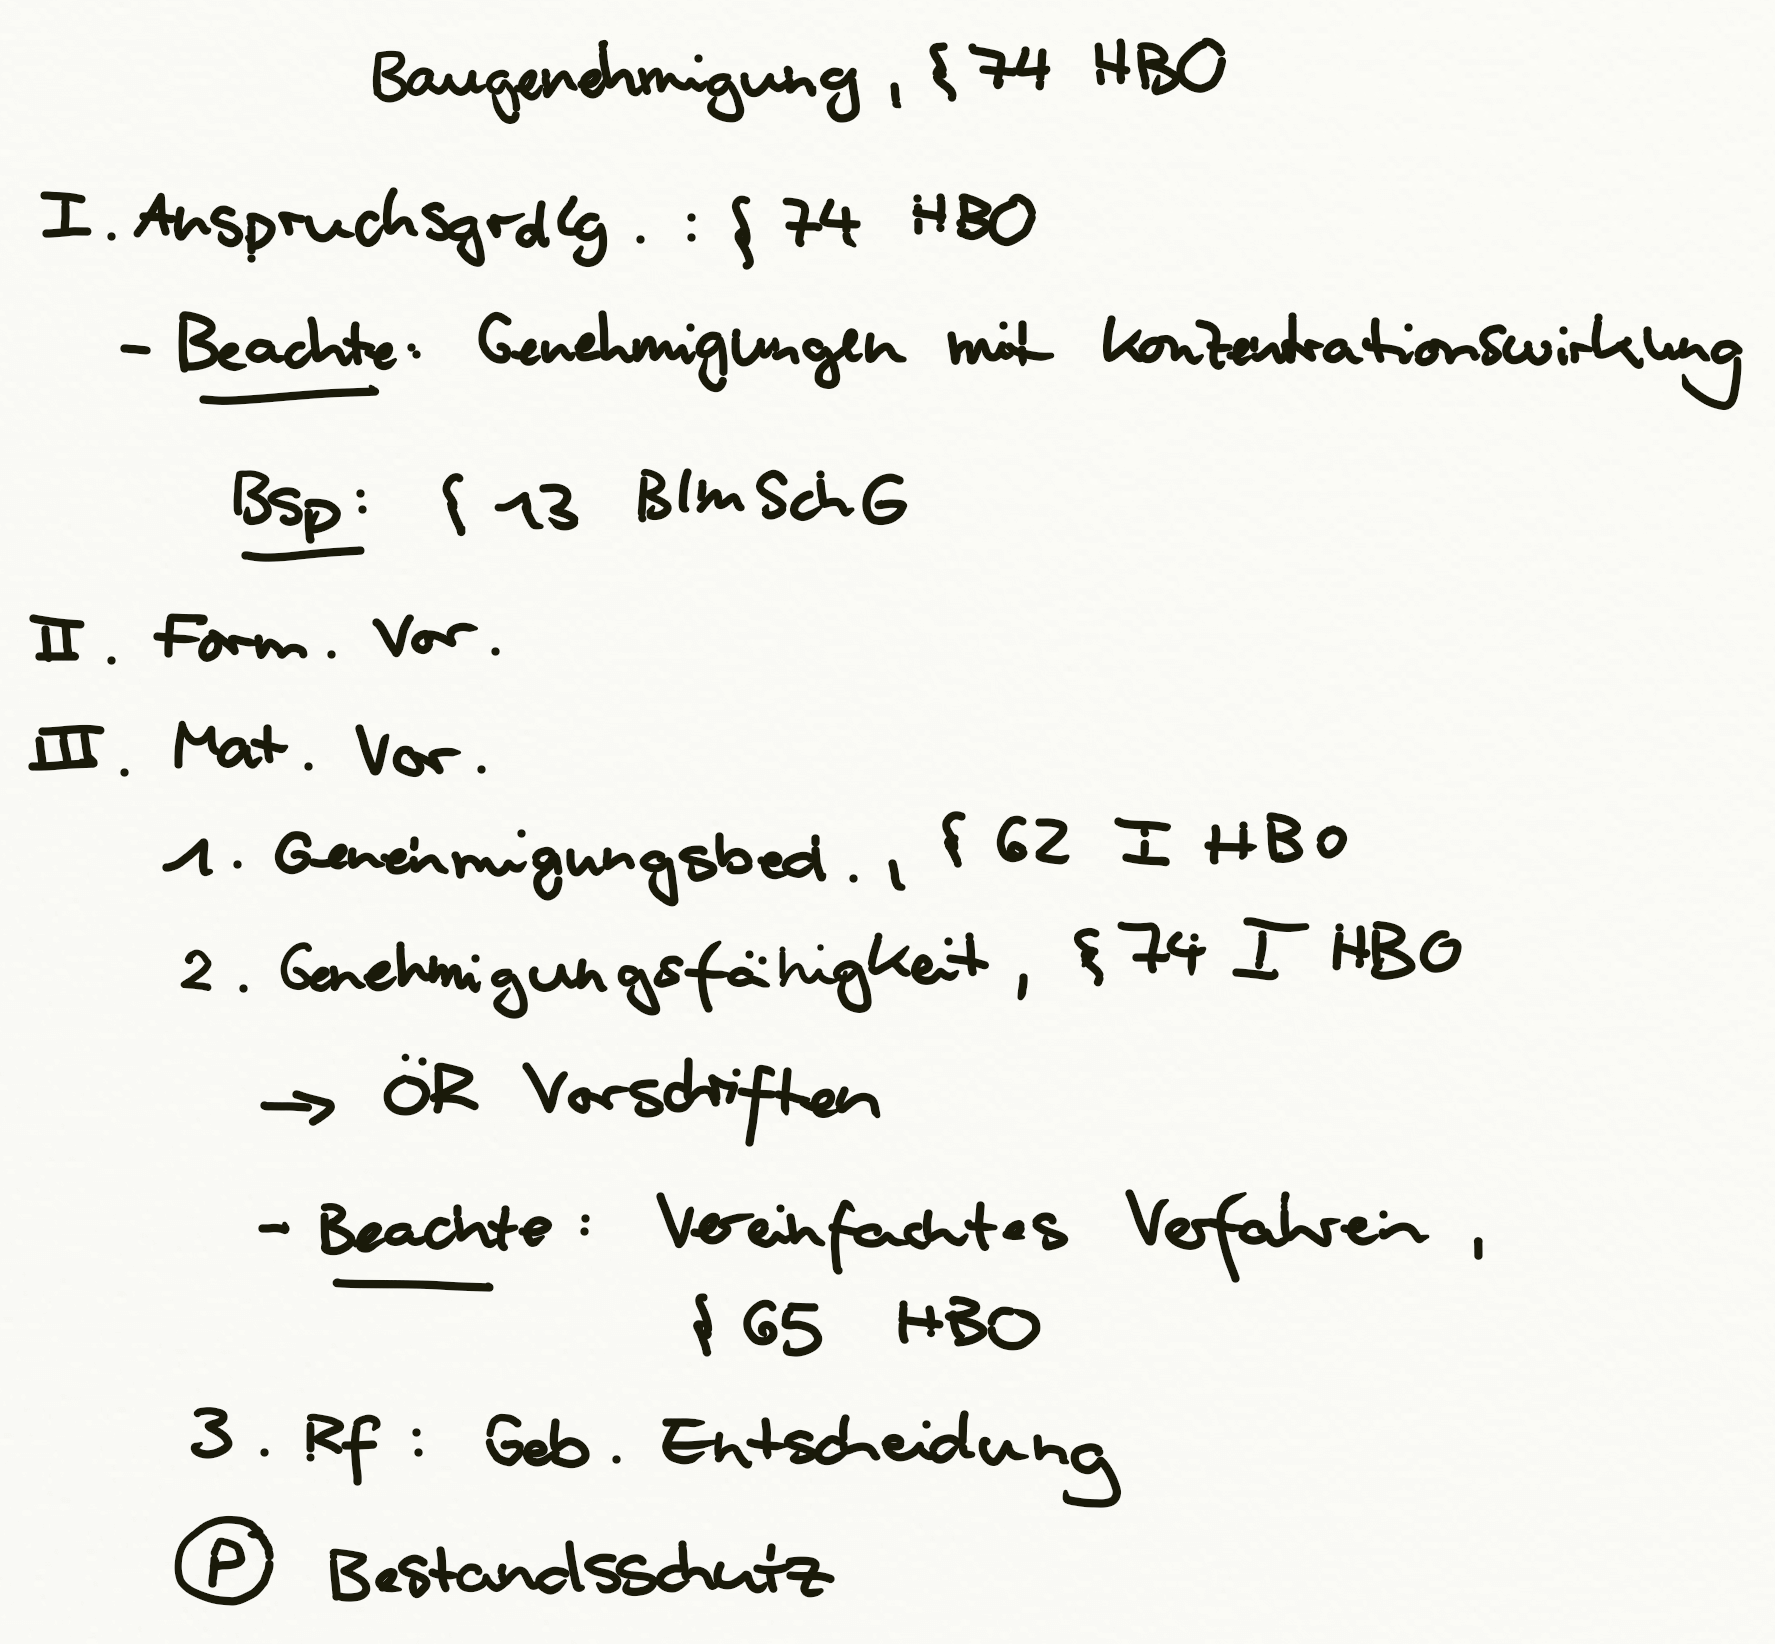 Baugenehmigung, § 74 HBO
I. Anspruchsgrdlg. : § 74 HBO
- Beachte: Genehmigungen mit Konzentrationswirkung
Bsp: § 13 BImSchG
II. Form. Vor.
III. Mat. Vor.
1. Genehmigungsbed., § 62 I HBO
2. Genehmigungsfähigkeit, § 74 I HBO
→ ÖR Vorschriften
- Beachte: Vereinfachtes Verfahren,
§ 65 HBO
3. Rf: Geb. Entscheidung
Ⓟ Bestandsschutz